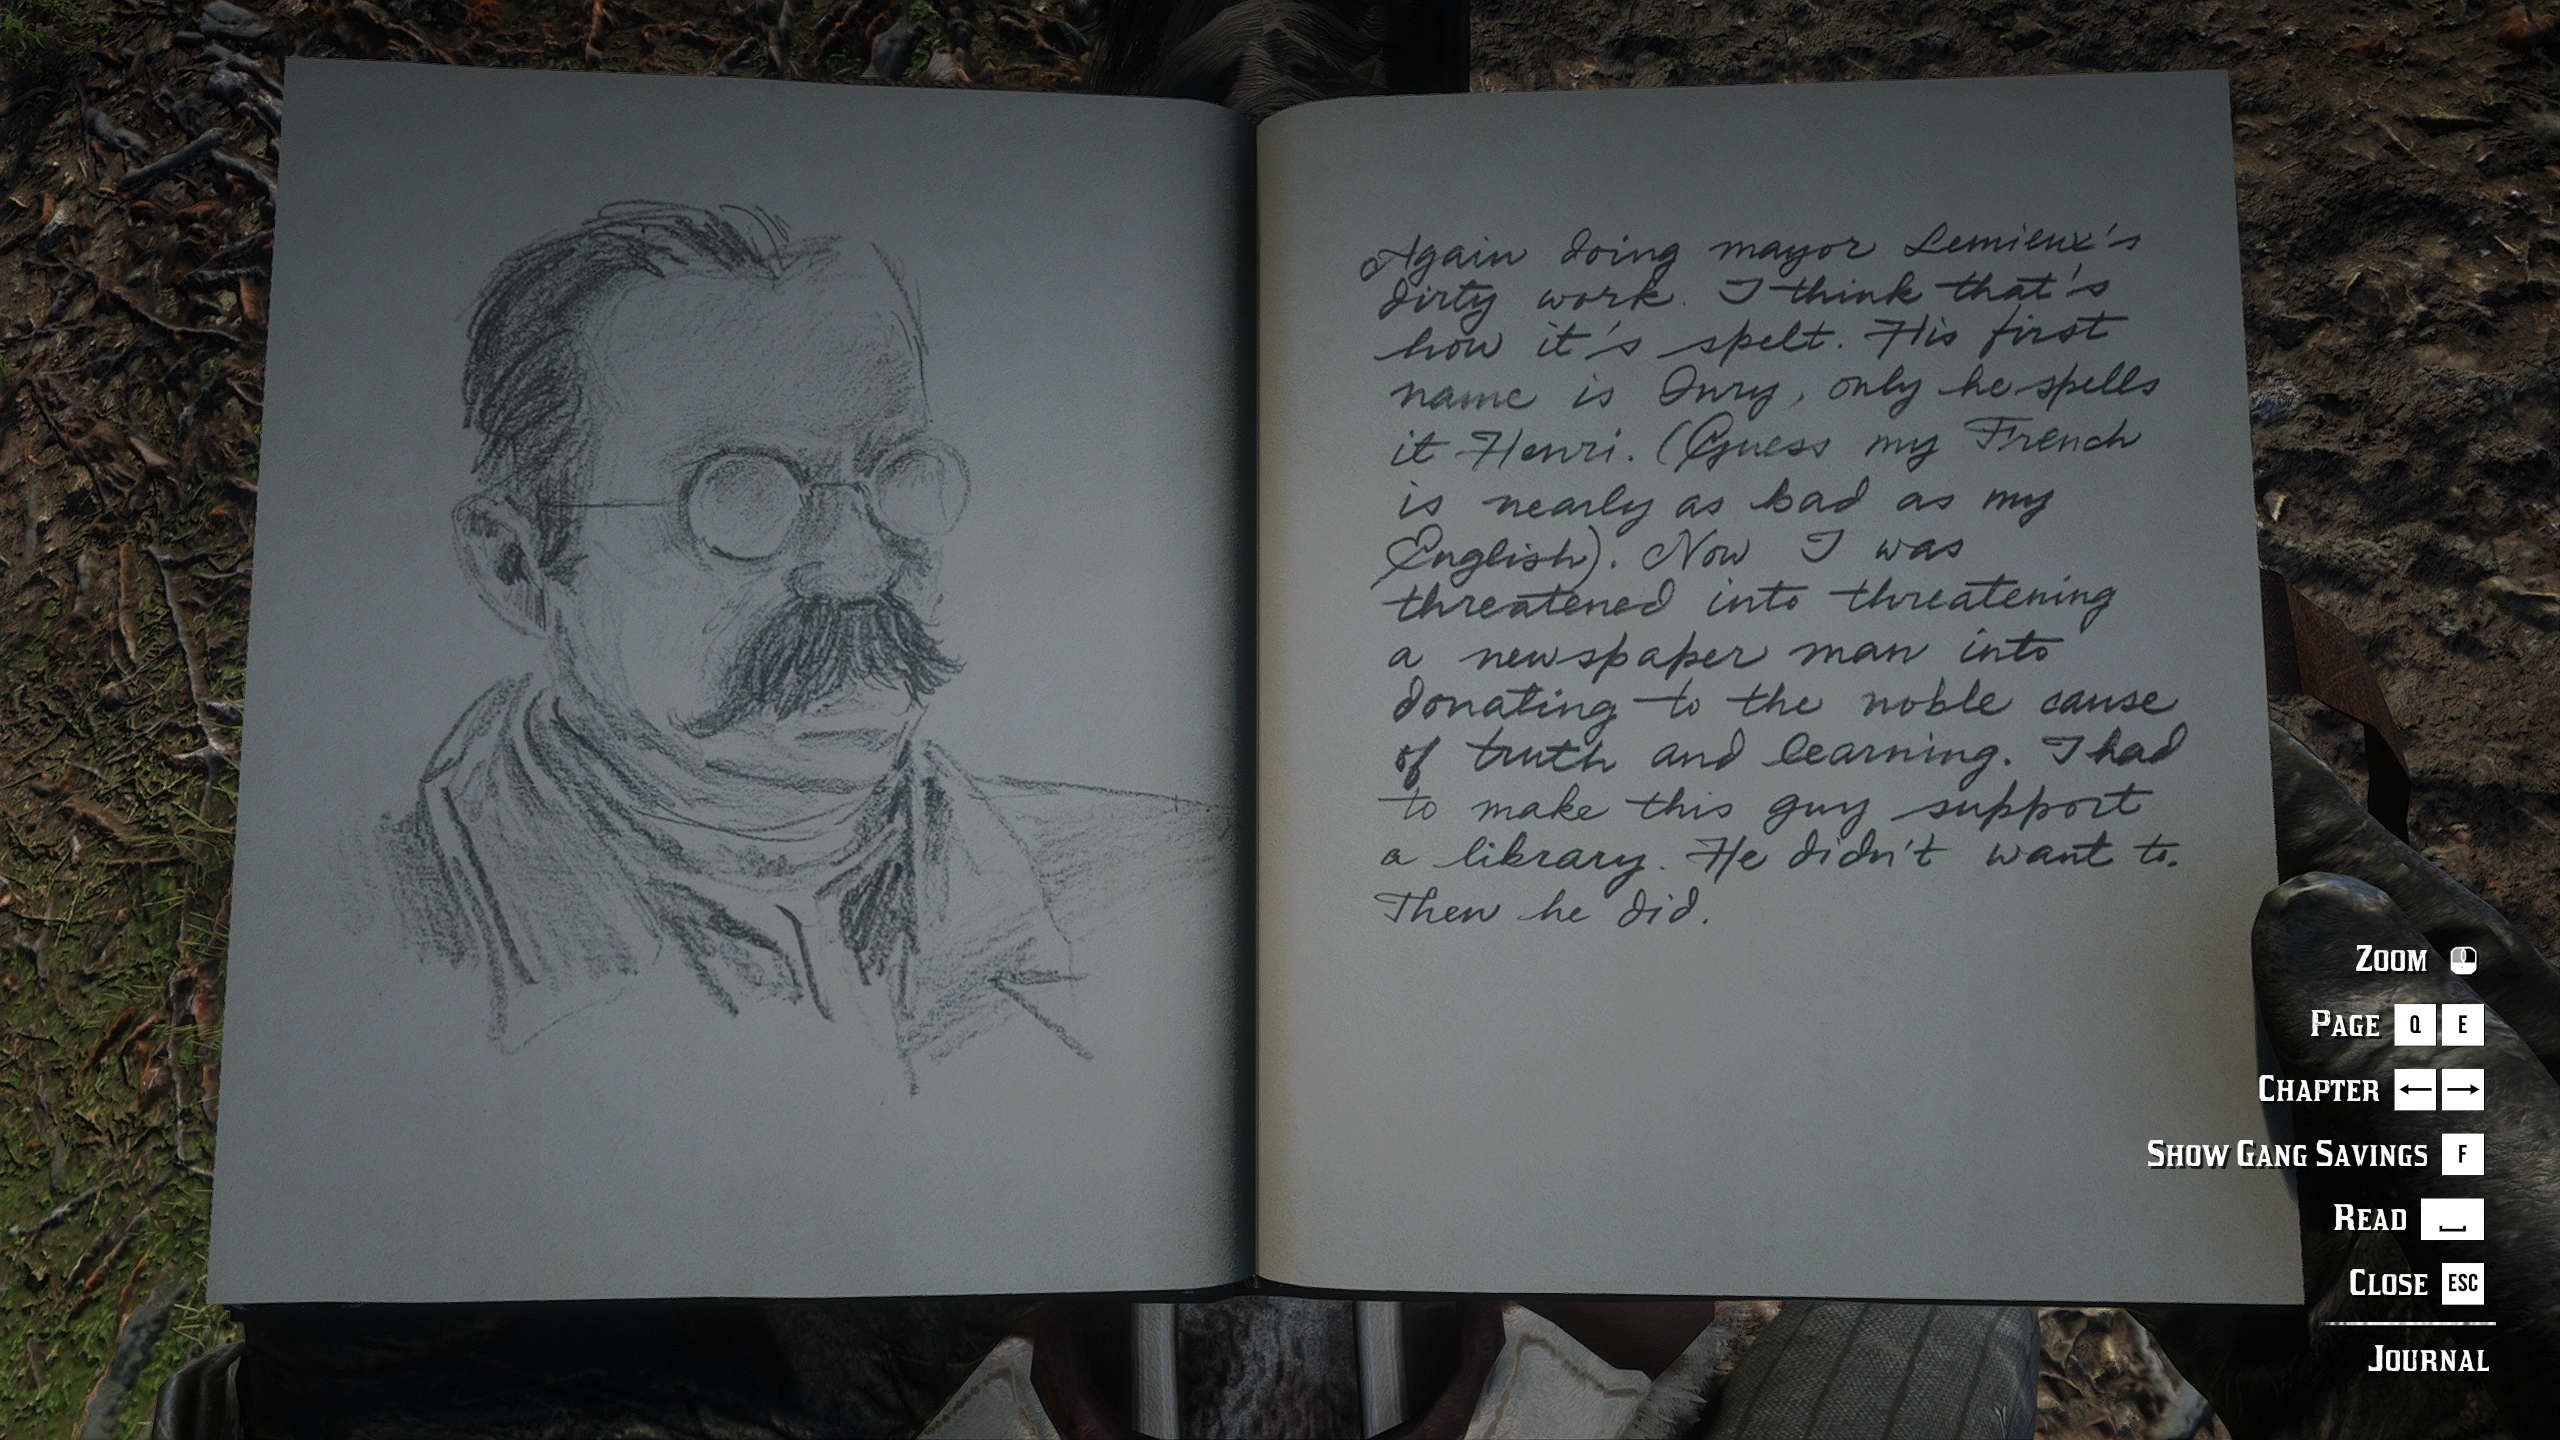 Again doing mayor Lemieux's
dirty work. I think that's
how it's spelt. His first
name is Onry, only he spells
it Henri. (Guess my French
is nearly as bad as my
English). Now I was
threatened into threatening
a newspaper man into
donating to the noble cause
of truth and learning. I had
to make this guy support
a library. He didn't want to.
Then he did.
ZOOM
PAGE Q E
CHAPTER ← →
SHOW GANG SAVINGS F
READ
CLOSE ESC
JOURNAL